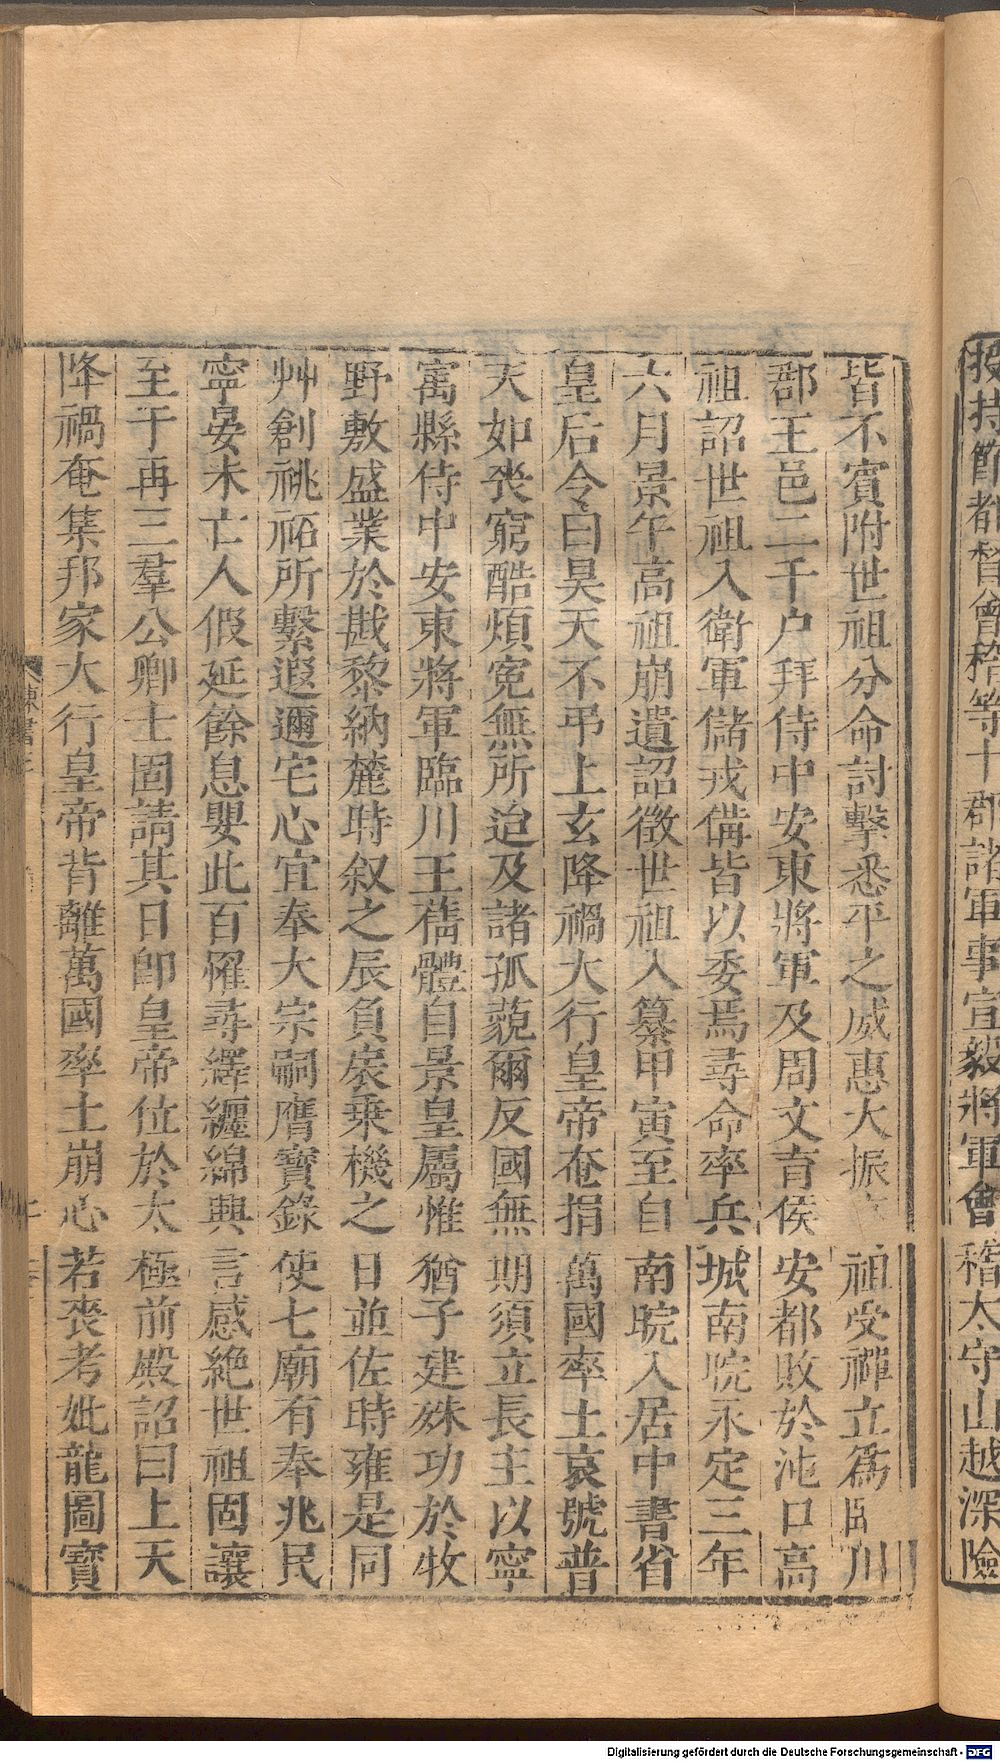 授持節都督會稽等十郡諸軍事宣毅將軍會稽太守山越深險
皆不賓附世祖分命討擊悉平之威惠大振高祖受禪立爲臨川
郡王邑二千户拜侍中安東將軍及周文育侯安都敗於沌口高
祖詔世祖入衛軍儲戎備皆以委焉尋命率兵城南皖永定三年
六月景午高祖崩遺詔徵世祖入纂甲寅至自南皖入居中書省
皇后令曰昊天不弔上玄降禍大行皇帝奄捐萬國率土哀號普
天如喪窮酷煩冤無所迨及諸孤藐爾反國無期須立長主以寧
寓縣侍中安東將軍臨川王蒨體自景皇屬惟猶子建殊功於牧
野敷盛業於戡黎納麓時叙之辰負扆乗機之日並佐時雍是同
艸創祧祏所繫遐邇宅心宜奉大宗嗣膺寶錄使七廟有奉兆民
寧晏未亡人假延餘息嬰此百罹尋繹纏綿興言感絶世祖固讓
至于再三羣公卿士固請其日卽皇帝位於太極前殿詔曰上天
降禍奄集邦家大行皇帝背離萬國率土崩心若喪考妣龍圖寶
陳書三
Digitalisierung gefördert durch die Deutsche Forschungsgemeinschaft - DFG